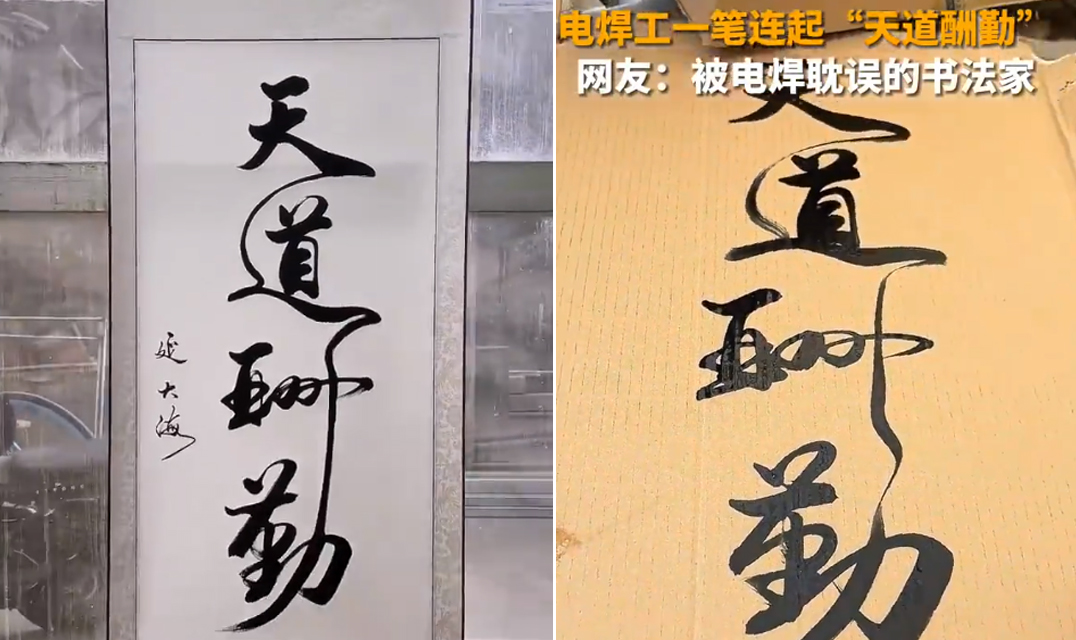 天道酬勤
延大海
电焊工一笔连起“天道酬勤”
网友：被电焊耽误的书法家
天道酬勤